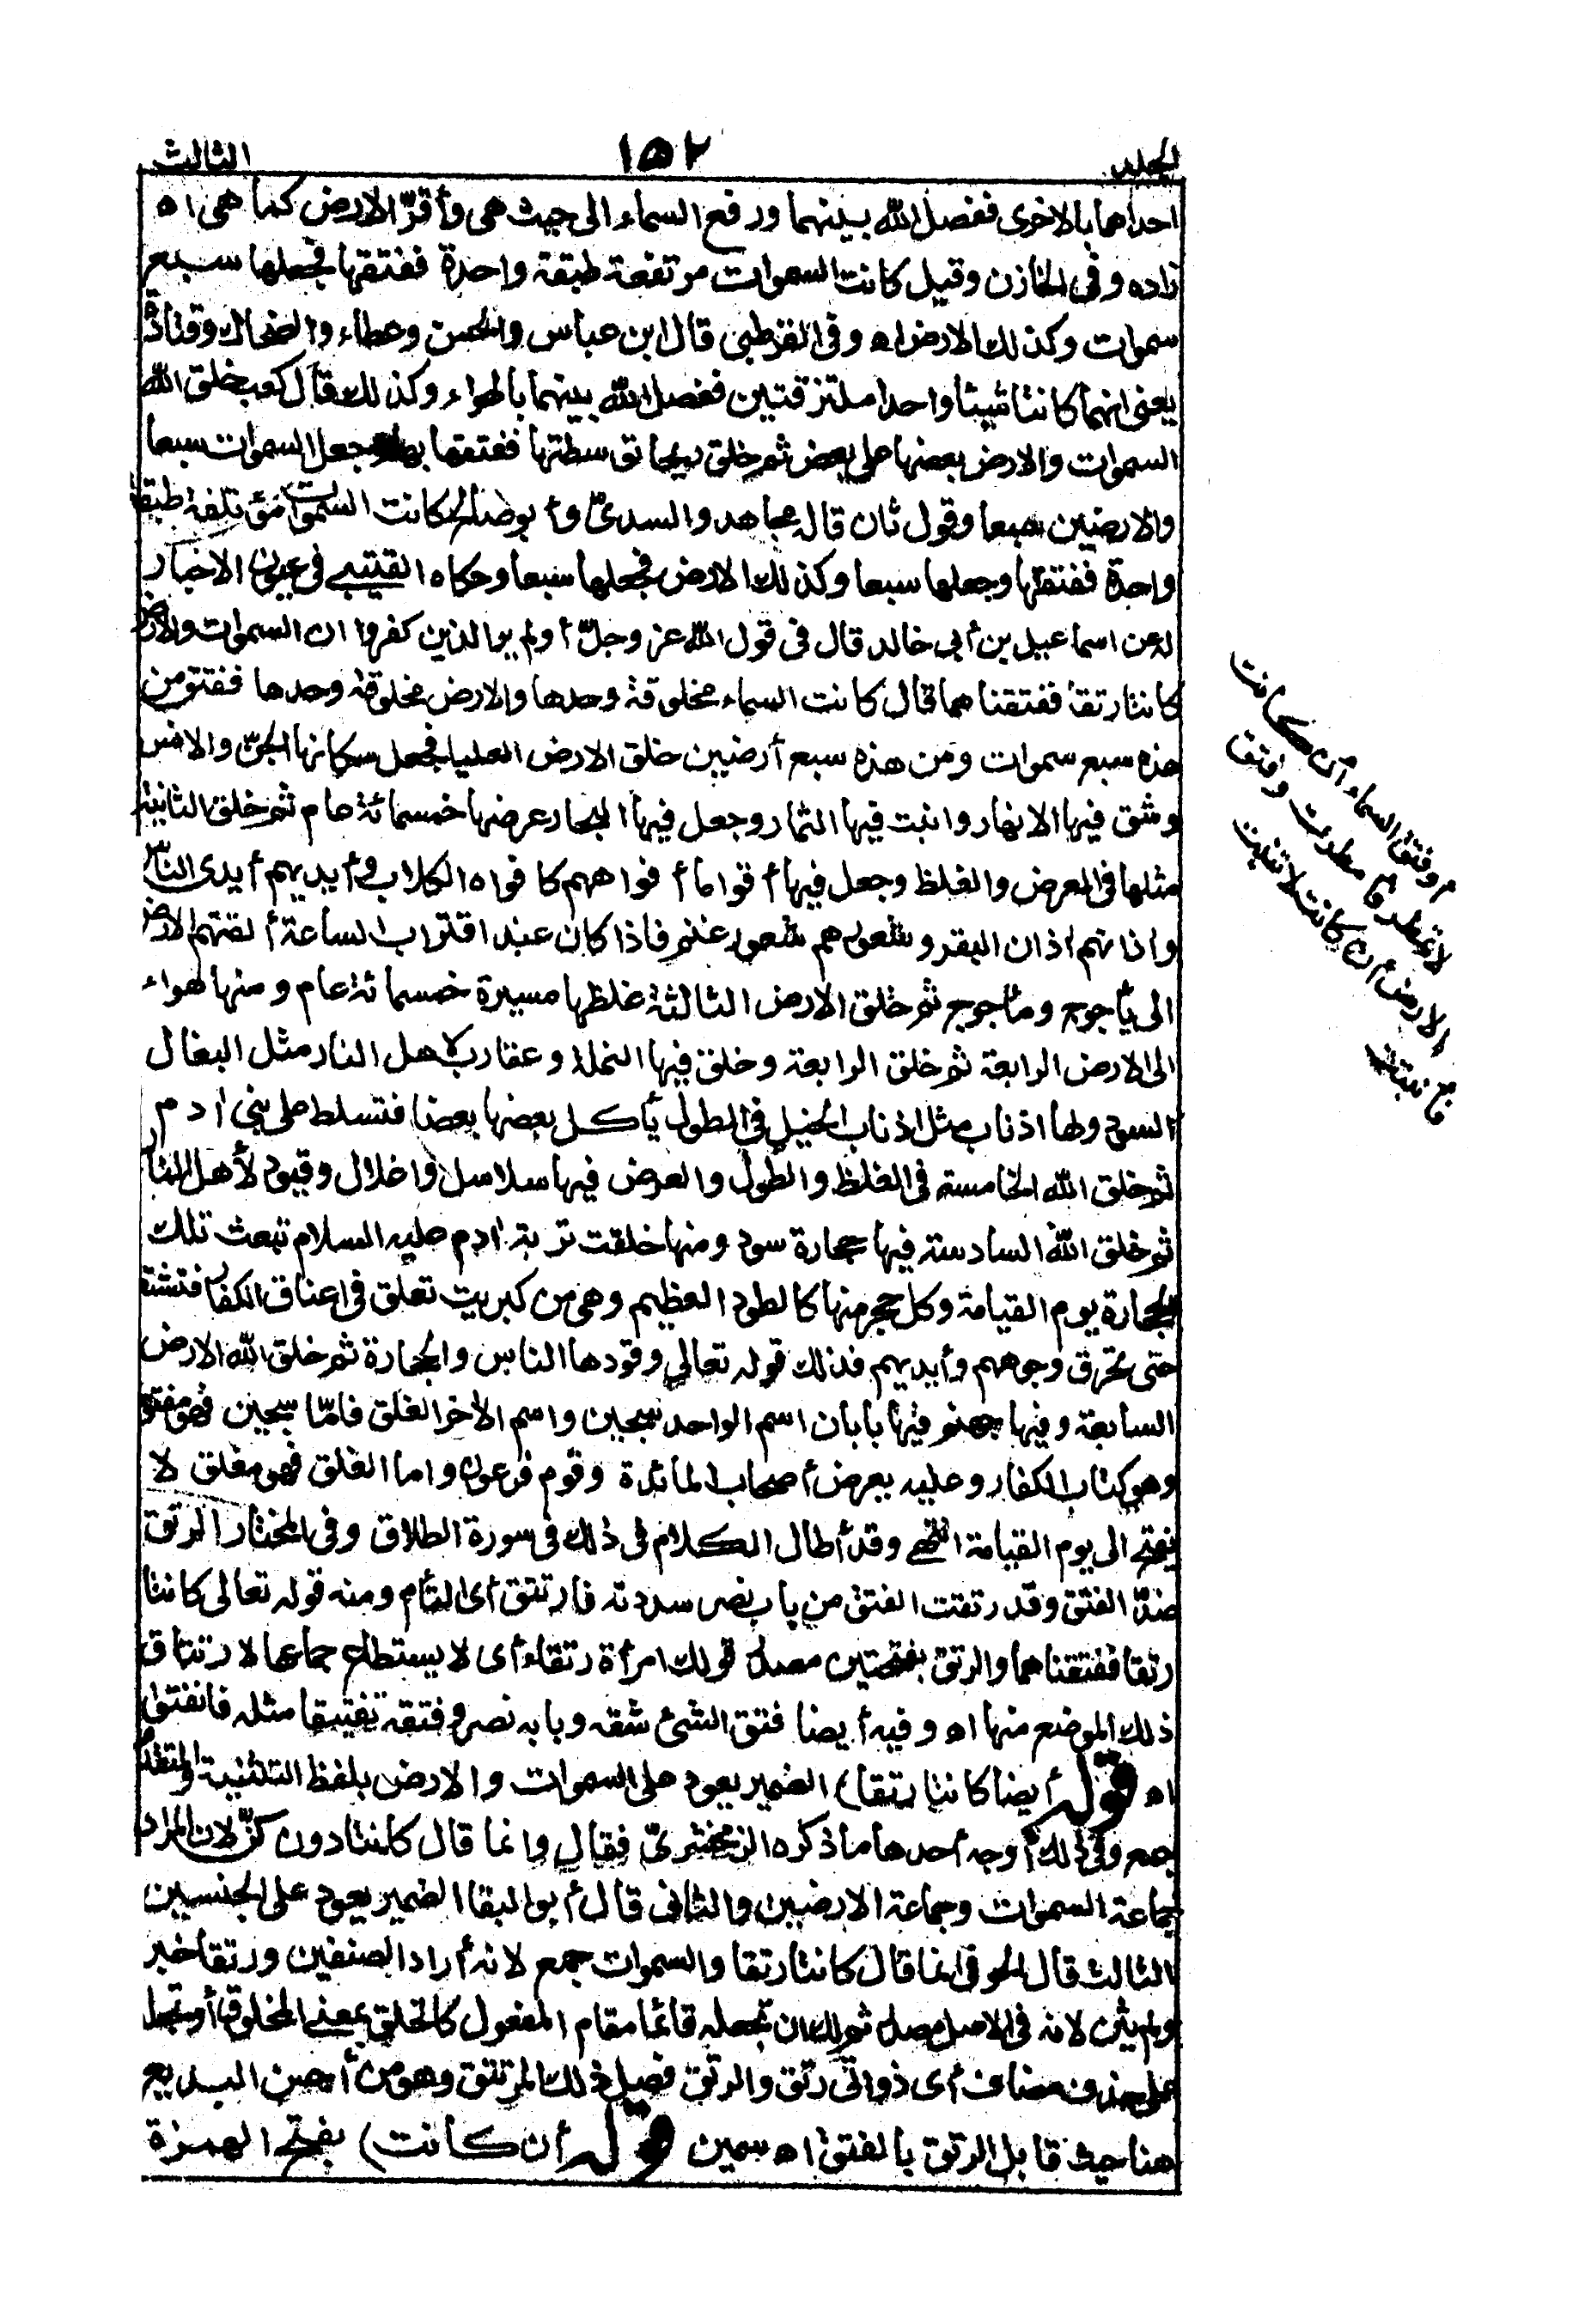 المجلد
١٥٢
الثالث
احداهما بالاخرى ففصل الله بينهما ورفع السماء الى حيث هى وأقرّ الارض كما هى اه
زاده وفى الخازن وقيل كانت السموات مرتفعة طبقة واحدة ففتقها فجعلها سبع
سموات وكذلك الارض اه وفى القرطبى قال ابن عباس والحسن وعطاء والضحاك وقتادة
يعنى انهما كانتا شيئا واحدا ملتزقتين ففصل الله بينهما بالهواء وكذلك قال كعب خلق الله
السموات والارض بعضها على بعض ثم خلق ريحا توسطتها ففتقها بها وجعل السموات سبعا
والارضين سبعا وقول ثان قاله مجاهد والسدىّ وأبوصالح كانت السموات مؤتلفة طبقة
واحدة ففتقها وجعلها سبعا وكذلك الارض فجعلها سبعا وحكاه القتيبى فى عيون الاخبار
له عن اسماعيل بن أبى خالد قال فى قول الله عز وجلّ أولم ير الذين كفروا ان السموات والارض
كانتا رتقا ففتقناهما قال كانت السماء مخلوقة وحدها والارض مخلوقة وحدها ففتق من
هذه سبع سموات ومن هذه سبع أرضين خلق الارض العليا فجعل سكانها الجنّ والانس
وشق فيها الانهار وانبت فيها الثمار وجعل فيها البحار عرضها خمسمائة عام ثم خلق الثانية
مثلها فى العرض والغلظ وجعل فيها أقواما أفواههم كافواه الكلاب وأيديهم أيدى الناس
واذانهم اذان البقر وشعورهم شعور غنم فاذا كان عند اقتراب الساعة ألقتهم الارض
الى يأجوج ومأجوج ثم خلق الارض الثالثة غلظها مسيرة خمسمائة عام ومنها هواء
الى الارض الرابعة ثم خلق الرابعة وخلق فيها النملة وعقارب لاهل النار مثل البغال
السود ولها اذناب مثل اذناب الخيل فى الطول يأكل بعضها بعضا فتسلط على بنى ادم
ثم خلق الله الخامسة فى الغلظ والطول والعرض فيها سلاسل واغلال وقيود لأهل النار
ثم خلق الله السادسة فيها حجارة سود ومنها خلقت تربة ادم عليه السلام تبعث تلك
الحجارة يوم القيامة وكل حجر منها كالطود العظيم وهى من كبريت تعلق فى اعناق الكفار فتشتعل
حتى تحرق وجوههم وأيديهم فذلك قوله تعالى وقودها الناس والحجارة ثم خلق الله الارض
السابعة وفيها جهنم فيها بابان اسم الواحد سجين واسم الاخر الغلق فامّا سجين فهو مفتوح
وهو كتاب الكفار وعليه يعرض أصحاب المائدة وقوم فرعون واما الغلق فهو مغلق لا
يفتح الى يوم القيامة انتهى وقد أطال الكلام فى ذلك فى سورة الطلاق وفى المختار الرتق
ضدّ الفتق وقد رتقت الفتق من باب نصر سددته فارتتق أى التأم ومنه قوله تعالى كانتا
رتقا ففتقناهما والرتق بفتحتين مصدر قولك امرأة رتقاء أى لا يستطاع جماعها لارتتاق
ذلك الموضع منها اه وفيه أيضا فتق الشئ شقه وبابه نصر وفتقه تفتيقا مثله فانفتق
اه قوله أيضا كانتا رتقا) الضمير يعود على السموات والارض بلفظ التثنية والمتقدم
جمع وفى ذلك أوجه أحدها ما ذكره الزمخشرىّ فقال وانما قال كانتا دون كنّ لان المراد
جماعة السموات وجماعة الارضين والثانى قال أبوالبقا الضمير يعود على الجنسين
الثالث قال الحوفى انما قال كانتا رتقا والسموات جمع لانه أراد الصنفين ورتقا خبر
ولم يثن لانه فى الاصل مصدر ثم لك ان تجعله قائما مقام المفعول كالخلق بمعنى المخلوق أو تجعله
على حذف مضاف أى ذواتى رتق والرتق فصيل ذلك المرتتق وهو من أحسن البديع
هنا حيث قابل الرتق بالفتق اه سمين قوله أن كانت) بفتح الهمزة
أو فتق السماء أن كانت
لا تمطر فامطرت وفتق
الارض أن كانت لا تنبت
فانبتت